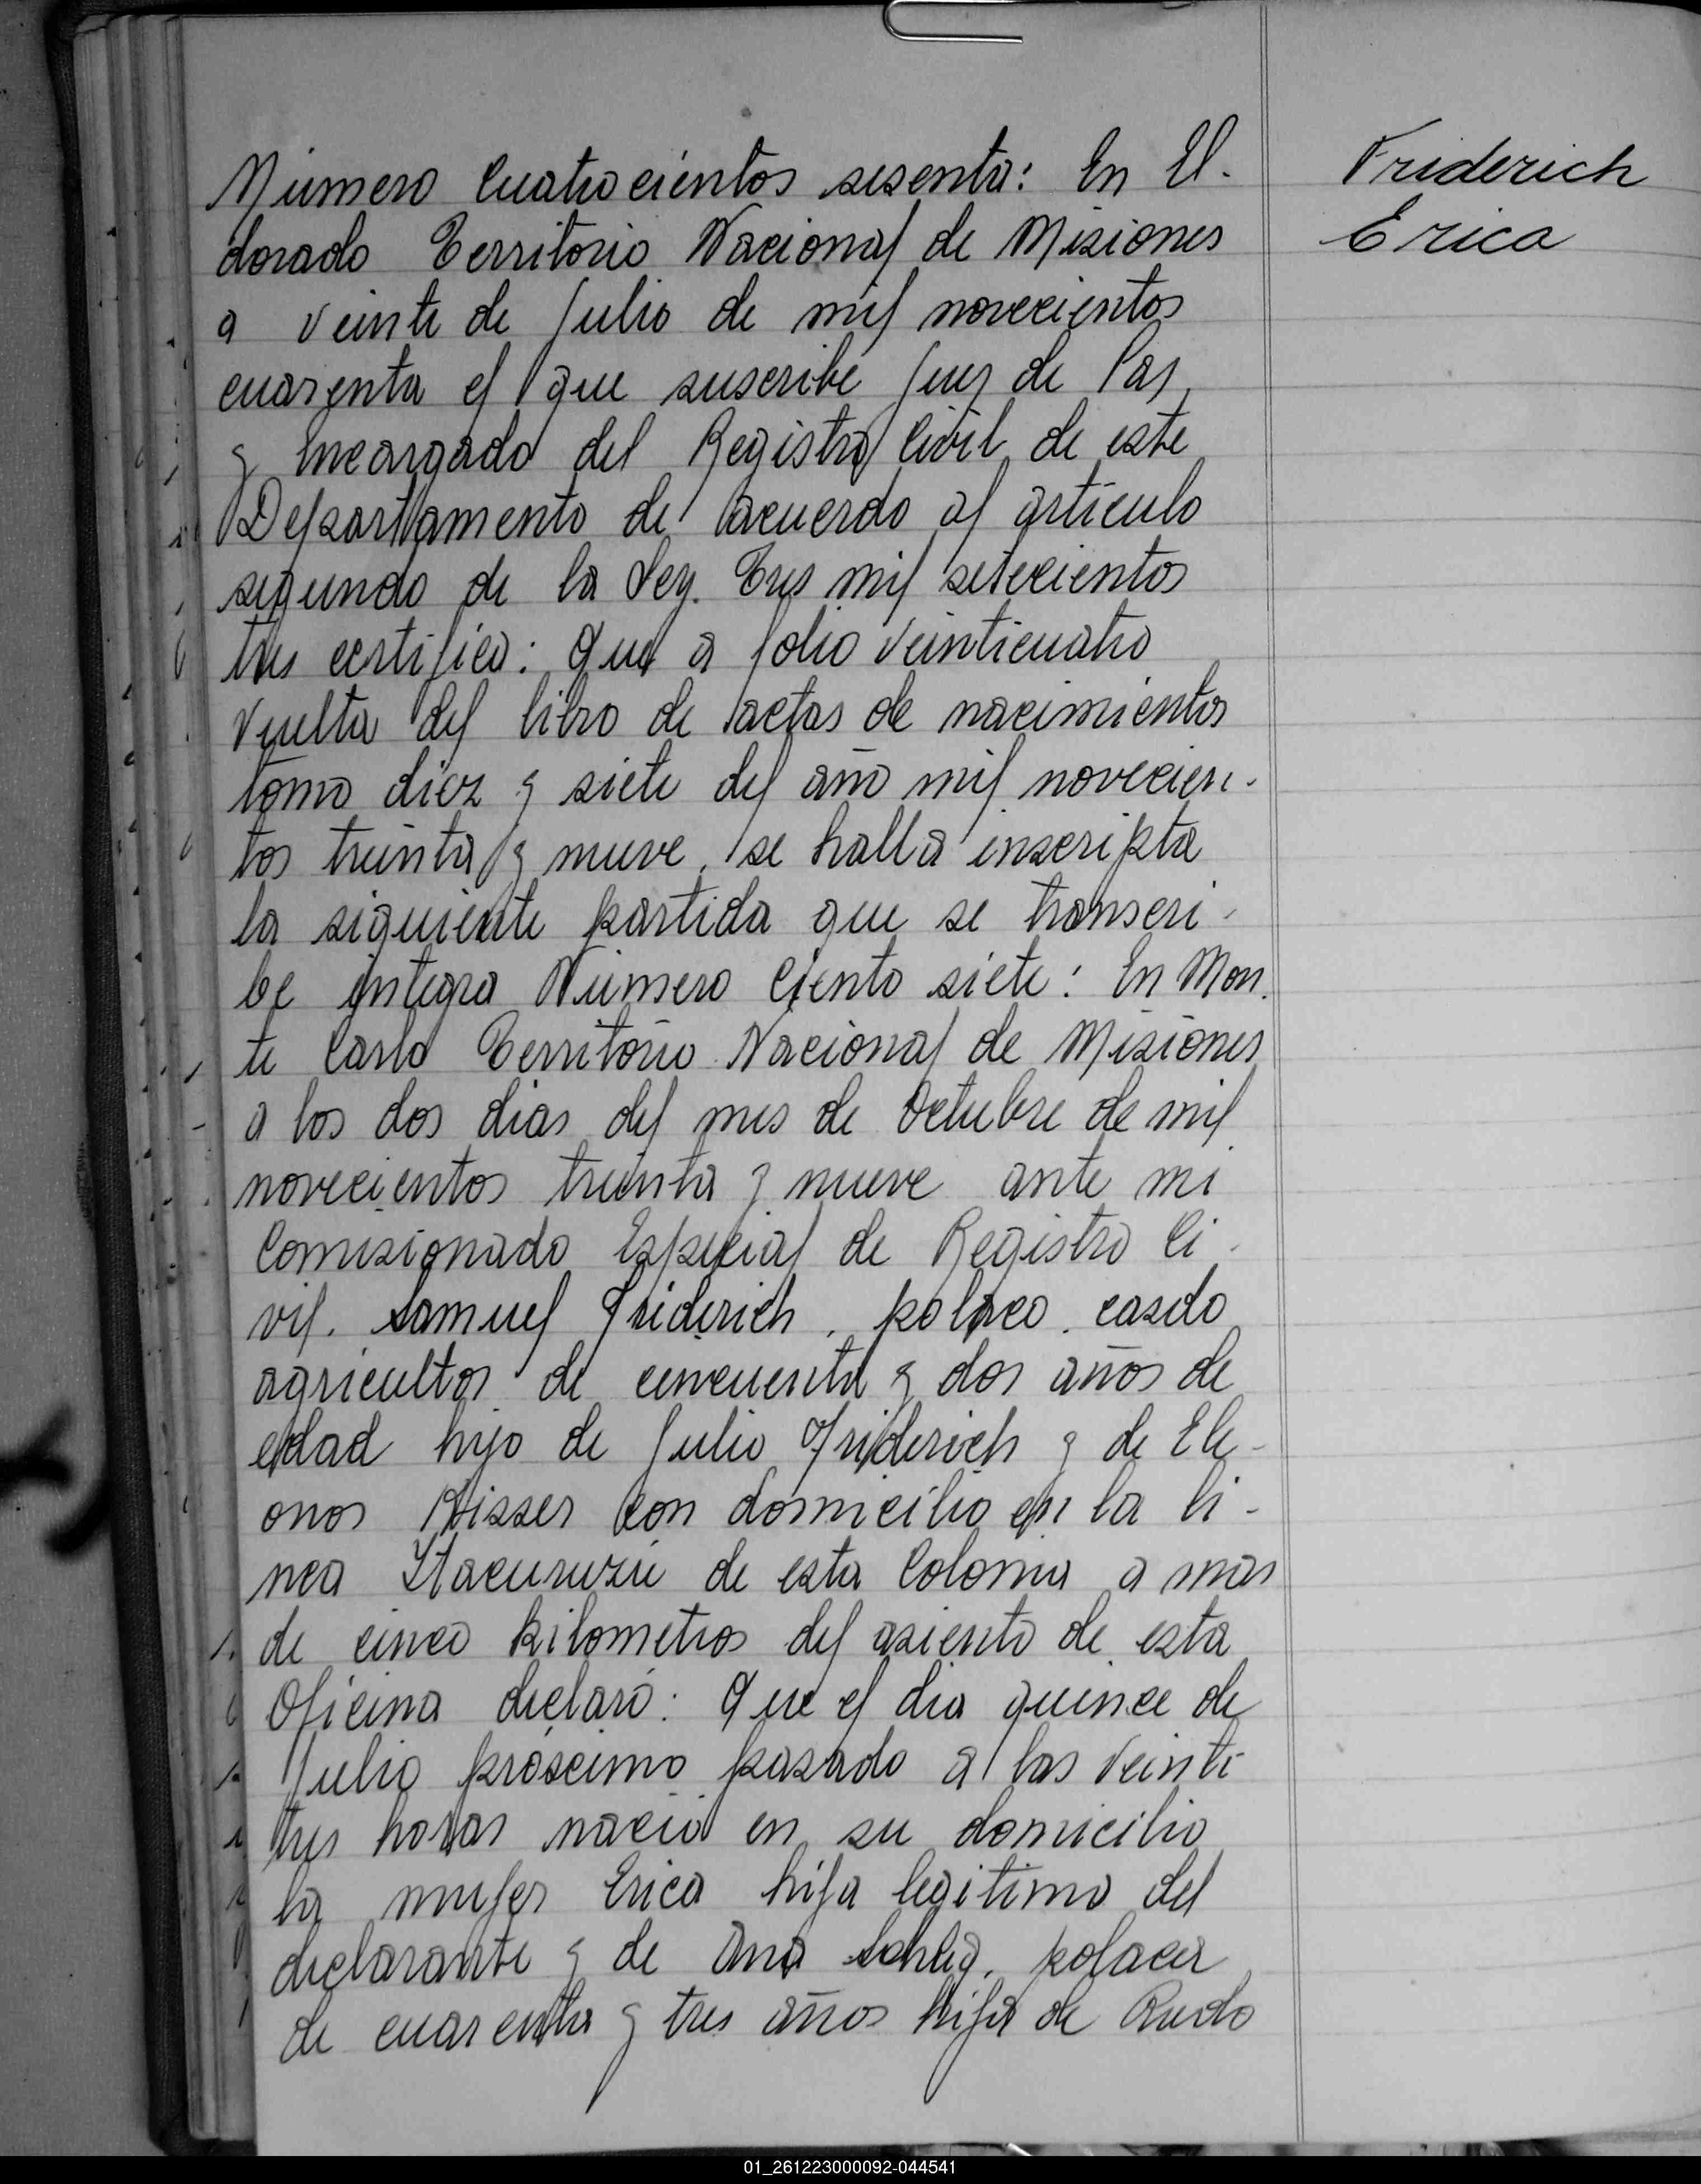 Número Cuatrocientos sesenta: En El-
dorado Territorio Nacional de Misiones
a veinte de Julio de mil novecientos
cuarenta el que suscribe Juez de Paz
y Encargado del Registro Civil de este
Departamento de acuerdo al artículo
segundo de la Ley. Tres mil setecientos
tres certifico: Que a folio veinticuatro
vuelta del libro de actas de nacimientos
tomo diez y siete del año mil novecien-
tos treinta y nueve, se halla inscripta
la siguiente partida que se transcri-
be integra Número Ciento siete: En Mon-
te Carlo Territorio Nacional de Misiones
a los dos dias del mes de Octubre de mil
novecientos treinta y nueve ante mi
Comisionado Especial de Registro Ci-
vil. Samuel Friderich, polaco, casdo
agricultor de cincuenta y dos años de
edad hijo de Julio Friderich y de Ele-
onor con domicilio en la li-
nea Itacuruzú de esta Colonia a mas
de cinco kilometros del asiento de esta
Oficina declaró: Que el dia quince de
Julio próscimo pasado a las veinti-
tres horas nació en su domicilio
la mujer Erica hija legitima del
declarante y de Ana polaca
de cuarenta y tres años hija de Rudo
Friderich
Erica
01_261223000092-044541